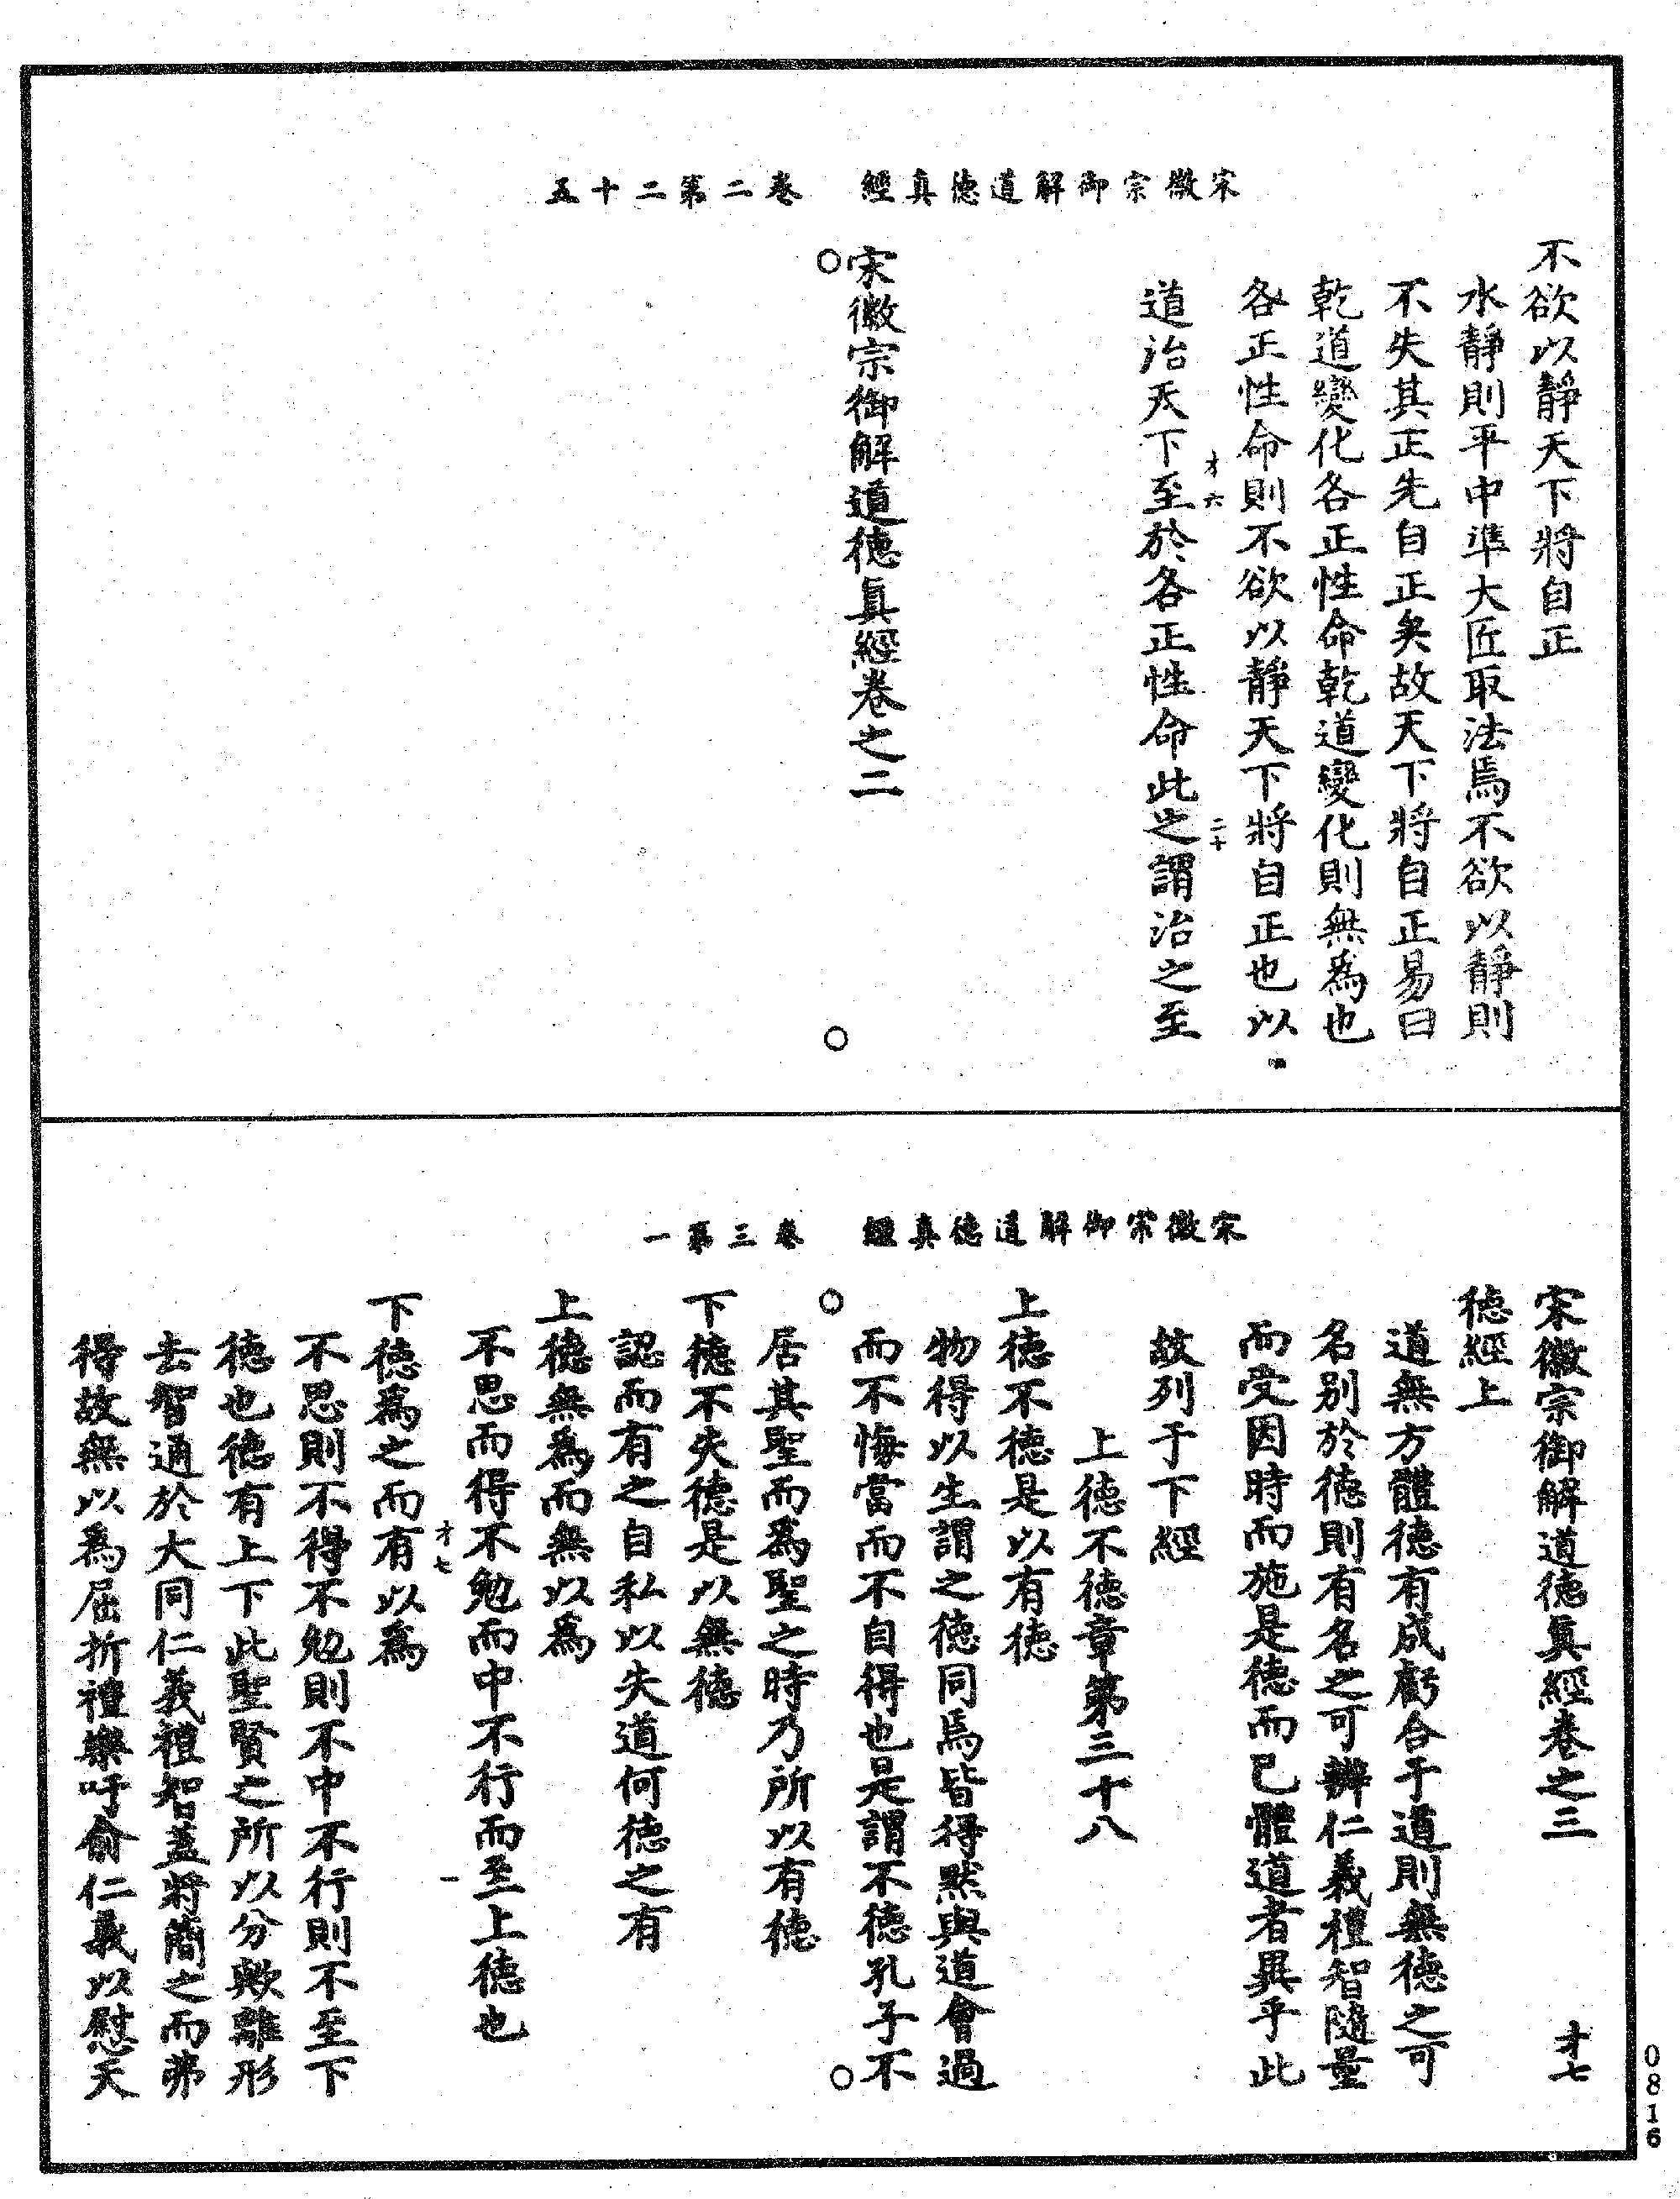 宋徽宗御解道德真經　卷二第二十五
不欲以靜天下將自正
水靜則平中準大匠取法焉不欲以靜則
不失其正先自正矣故天下將自正易曰
乾道變化各正性命乾道變化則無為也
各正性命則不欲以靜天下將自正也以
才六　二十
道治天下至於各正性命此之謂治之至
宋徽宗御解道德真經卷之二
宋徽宗御解道德真經　卷三第一
宋徽宗御解道德真經卷之三　才七
德經上
道無方體德有成虧合于道則無德之可
名別於德則有名之可辨仁義禮智隨量
而受因時而施是德而已體道者異乎此
故列于下經
上德不德章第三十八
上德不德是以有德
物得以生謂之德同焉皆得默與道會過
而不悔當而不自得也是謂不德孔子不
居其聖而為聖之時乃所以有德
下德不失德是以無德
認而有之自私以失道何德之有
上德無為而無以為
不思而得不勉而中不行而至上德也
才七　一
下德為之而有以為
不思則不得不勉則不中不行則不至下
德也德有上下此聖賢之所以分歟離形
去智通於大同仁義禮智蓋將簡之而弗
得故無以為屈折禮樂吁俞仁義以慰天
0816